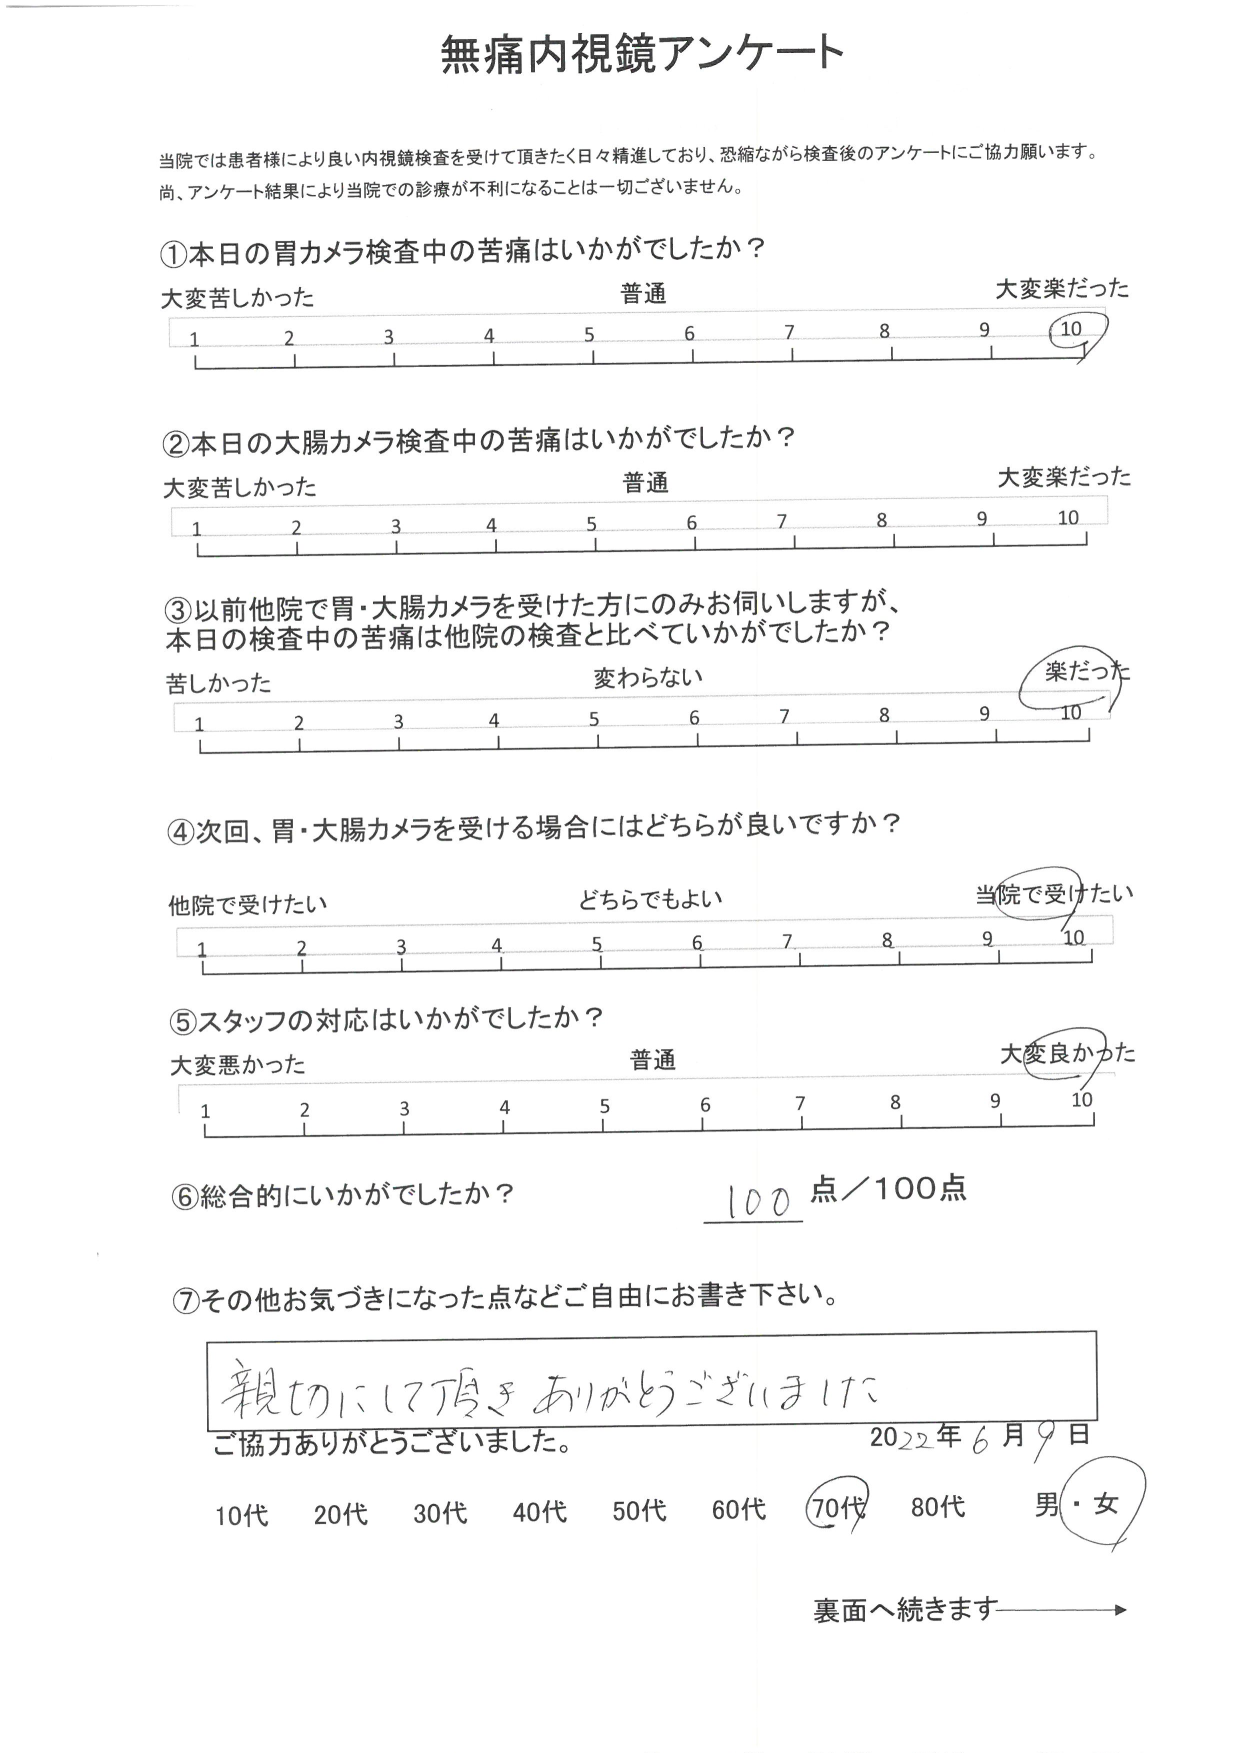 無痛内視鏡アンケート
当院では患者様により良い内視鏡検査を受けて頂きたく日々精進しており、恐縮ながら検査後のアンケートにご協力願います。
尚、アンケート結果により当院での診療が不利になることは一切ございません。
①本日の胃カメラ検査中の苦痛はいかがでしたか？
大変苦しかった 普通 大変楽だった
1 2 3 4 5 6 7 8 9 10
②本日の大腸カメラ検査中の苦痛はいかがでしたか？
大変苦しかった 普通 大変楽だった
1 2 3 4 5 6 7 8 9 10
③以前他院で胃・大腸カメラを受けた方にのみお伺いしますが、
本日の検査中の苦痛は他院の検査と比べていかがでしたか？
苦しかった 変わらない 楽だった
1 2 3 4 5 6 7 8 9 10
④次回、胃・大腸カメラを受ける場合にはどちらが良いですか？
他院で受けたい どちらでもよい 当院で受けたい
1 2 3 4 5 6 7 8 9 10
⑤スタッフの対応はいかがでしたか？
大変悪かった 普通 大変良かった
1 2 3 4 5 6 7 8 9 10
⑥総合的にいかがでしたか？ 100 点／100点
⑦その他お気づきになった点などご自由にお書き下さい。
親切にして頂きありがとうございました
ご協力ありがとうございました。 2022年6月9日
10代 20代 30代 40代 50代 60代 70代 80代 男・女
裏面へ続きます